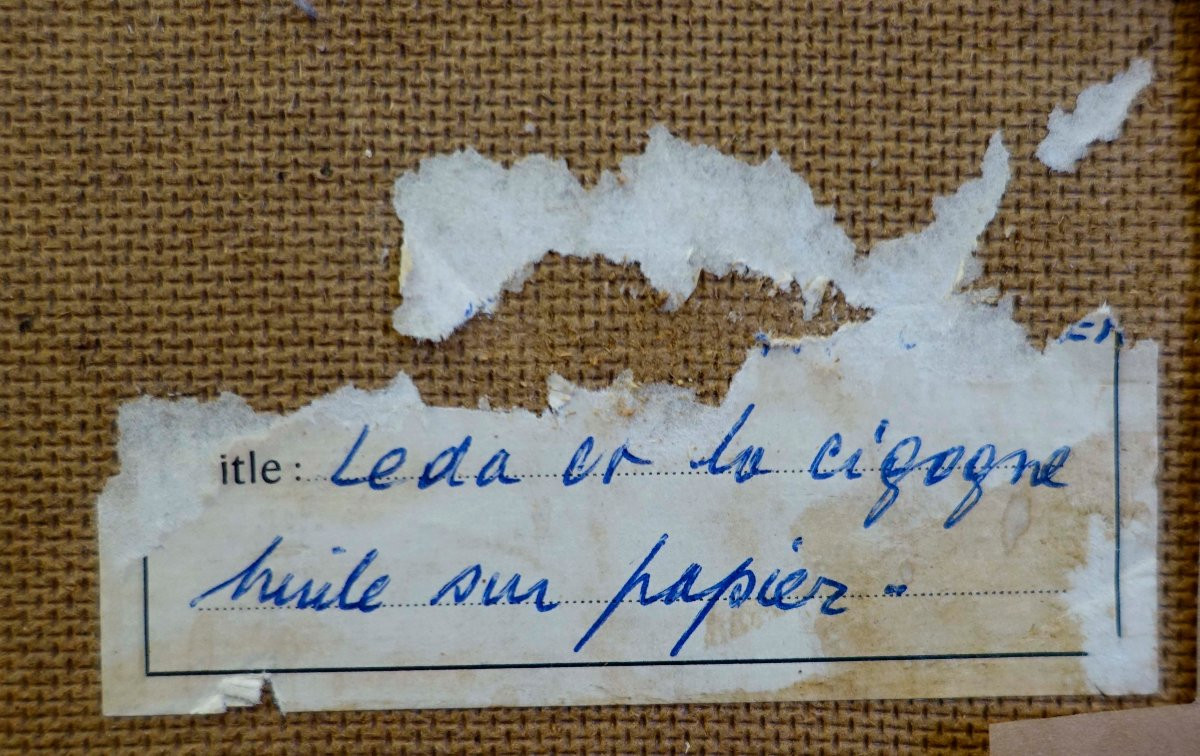 itle : Leda et la cigogne
huile sur papier -